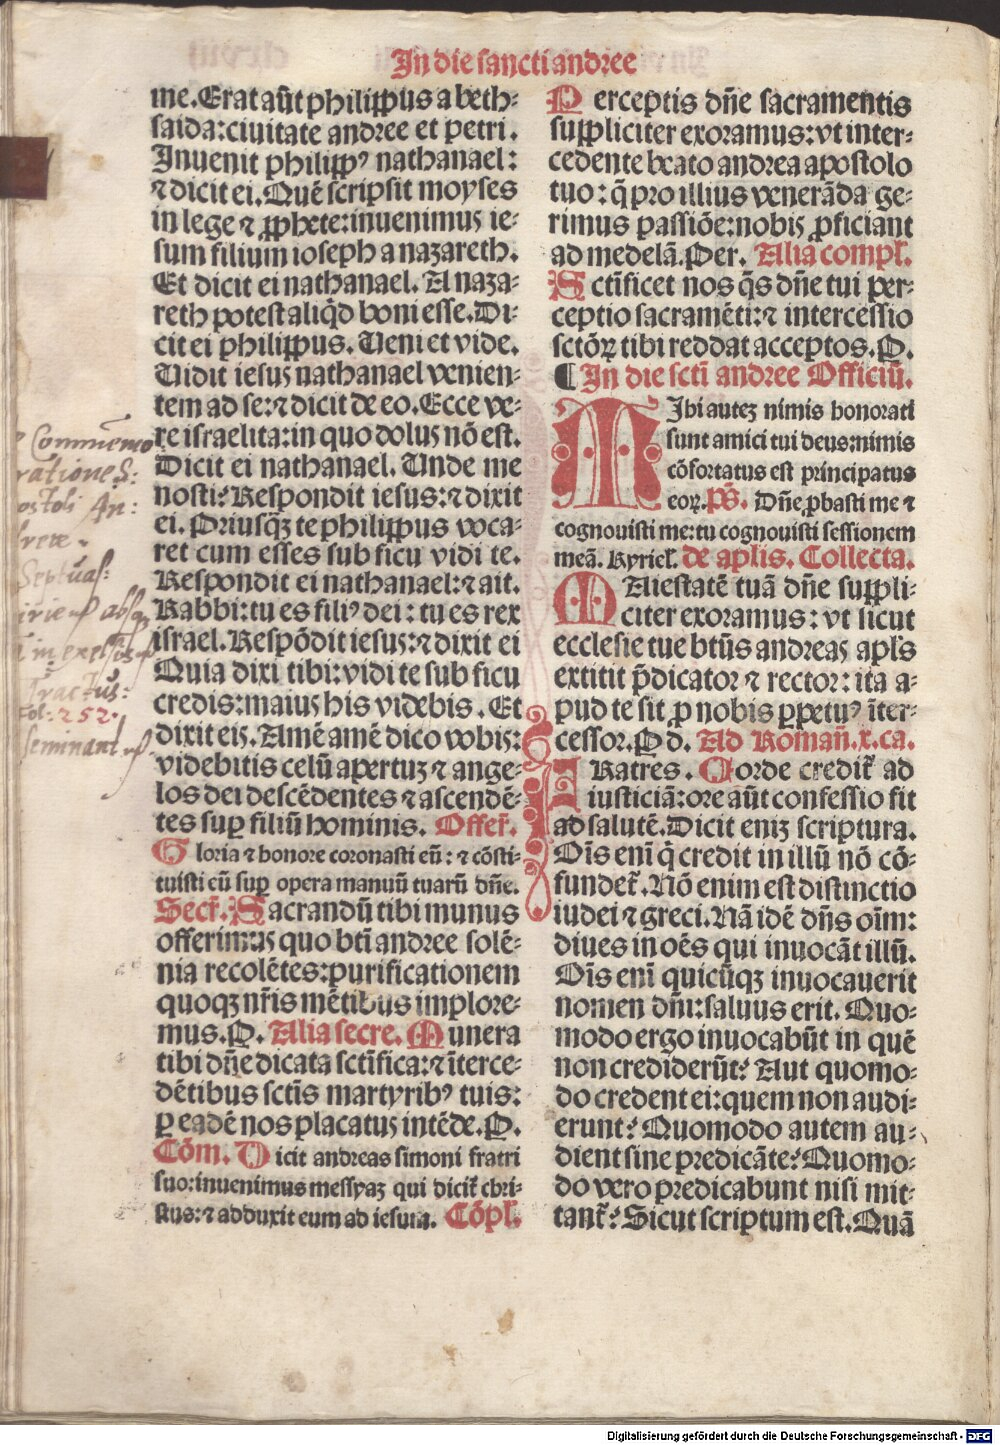 In die sancti andree
me. Erat aūt philippus a beth-
saida: ciuitate andree et petri.
Inuenit philippꝰ nathanael:
⁊ dicit ei. Quē scripsit moyses
in lege ⁊ ꝓphete: inuenimus ie-
sum filium ioseph a nazareth.
Et dicit ei nathanael. A naza-
reth potest aliqd̄ boni esse. Di-
cit ei philippus. Ueni et vide.
Uidit iesus nathanael venien-
tem ad se: ⁊ dicit de eo. Ecce ve-
re israelita: in quo dolus nō est.
Dicit ei nathanael. Unde me
nosti? Respondit iesus: ⁊ dixit
ei. Priusqꝫ te philippus voca-
ret cum esses sub ficu vidi te.
Respondit ei nathanael: ⁊ ait.
Rabbi: tu es filiꝰ dei: tu es rex
israel. Respōdit iesus: ⁊ dixit ei
Quia dixi tibi: vidi te sub ficu
credis: maius his videbis. Et
dixit eis. Amē amē dico vobis:
videbitis celū apertuꝫ ⁊ ange-
los dei descēdentes ⁊ ascendē-
tes suꝑ filiū hominis. Offer̄.
Gloria ⁊ honore coronasti eū: ⁊ cōsti-
tuisti eū suꝑ opera manuū tuarū dn̄e.
Secr̄. Sacrandū tibi munus
offerimus quo bt̄i andree solē-
nia recolētes: purificationem
quoqꝫ nr̄is mētibus implore-
mus. P. Alia secre. Munera
tibi dn̄e dicata sct̄ifica: ⁊ īterce-
dētibus sct̄is martyribꝰ tuis:
ꝑ eadē nos placatus intēde. P.
Cōm. Dicit andreas simoni fratri
suo: inuenimus messyaꝫ qui dicit̄ chri-
stus: ⁊ adduxit eum ad iesum. Cōpl̄.
Perceptis dn̄e sacramentis
suppliciter exoramus: vt inter-
cedente beato andrea apostolo
tuo: q̄ pro illius venerāda ge-
rimus passiōe: nobis ꝓficiant
ad medelā. Per. Alia compl̄.
Sct̄ificet nos q̄s dn̄e tui per-
ceptio sacramēti: ⁊ intercessio
sctōꝝ tibi reddat acceptos. P.
¶ In die sct̄i andree Officiū.
Mihi auteꝫ nimis honorati
sunt amici tui deus: nimis
cōfortatus est principatus
eoꝝ. ps̄. Dn̄e ꝓbasti me ⁊
cognouisti me: tu cognouisti sessionem
meā. Kyriel̄. de apl̄is. Collecta.
Maiestatē tuā dn̄e suppli-
citer exoramus: vt sicut
ecclesie tue bt̄us andreas apl̄s
extitit p̄dicator ⁊ rector: ita a-
pud te sit ꝓ nobis ꝑpetuꝰ īter-
cessor. P d. Ad Roman̄. x. ca.
Fratres. Corde credit̄ ad
iusticiā: ore aūt confessio fit
ad salutē. Dicit eniꝫ scriptura.
Oīs enī q̄ credit in illū nō cō-
fundet̄. Nō enim est distinctio
iudei ⁊ greci. Nā idē dn̄s oīm:
diues in oēs qui inuocāt illū.
Oīs enī quicūqꝫ inuocauerit
nomen dn̄i: saluus erit. Quo-
modo ergo inuocabūt in quē
non crediderūt? Aut quomo-
do credent ei: quem non audi-
erunt? Quomodo autem au-
dient sine predicāte? Quomo-
do vero predicabunt nisi mit-
tant̄? Sicut scriptum est. Quā
Commemo
rationes:
ostoli An:
Septuas:
Tractus:
fol: 252.
seminant
Digitalisierung gefördert durch die Deutsche Forschungsgemeinschaft - DFG